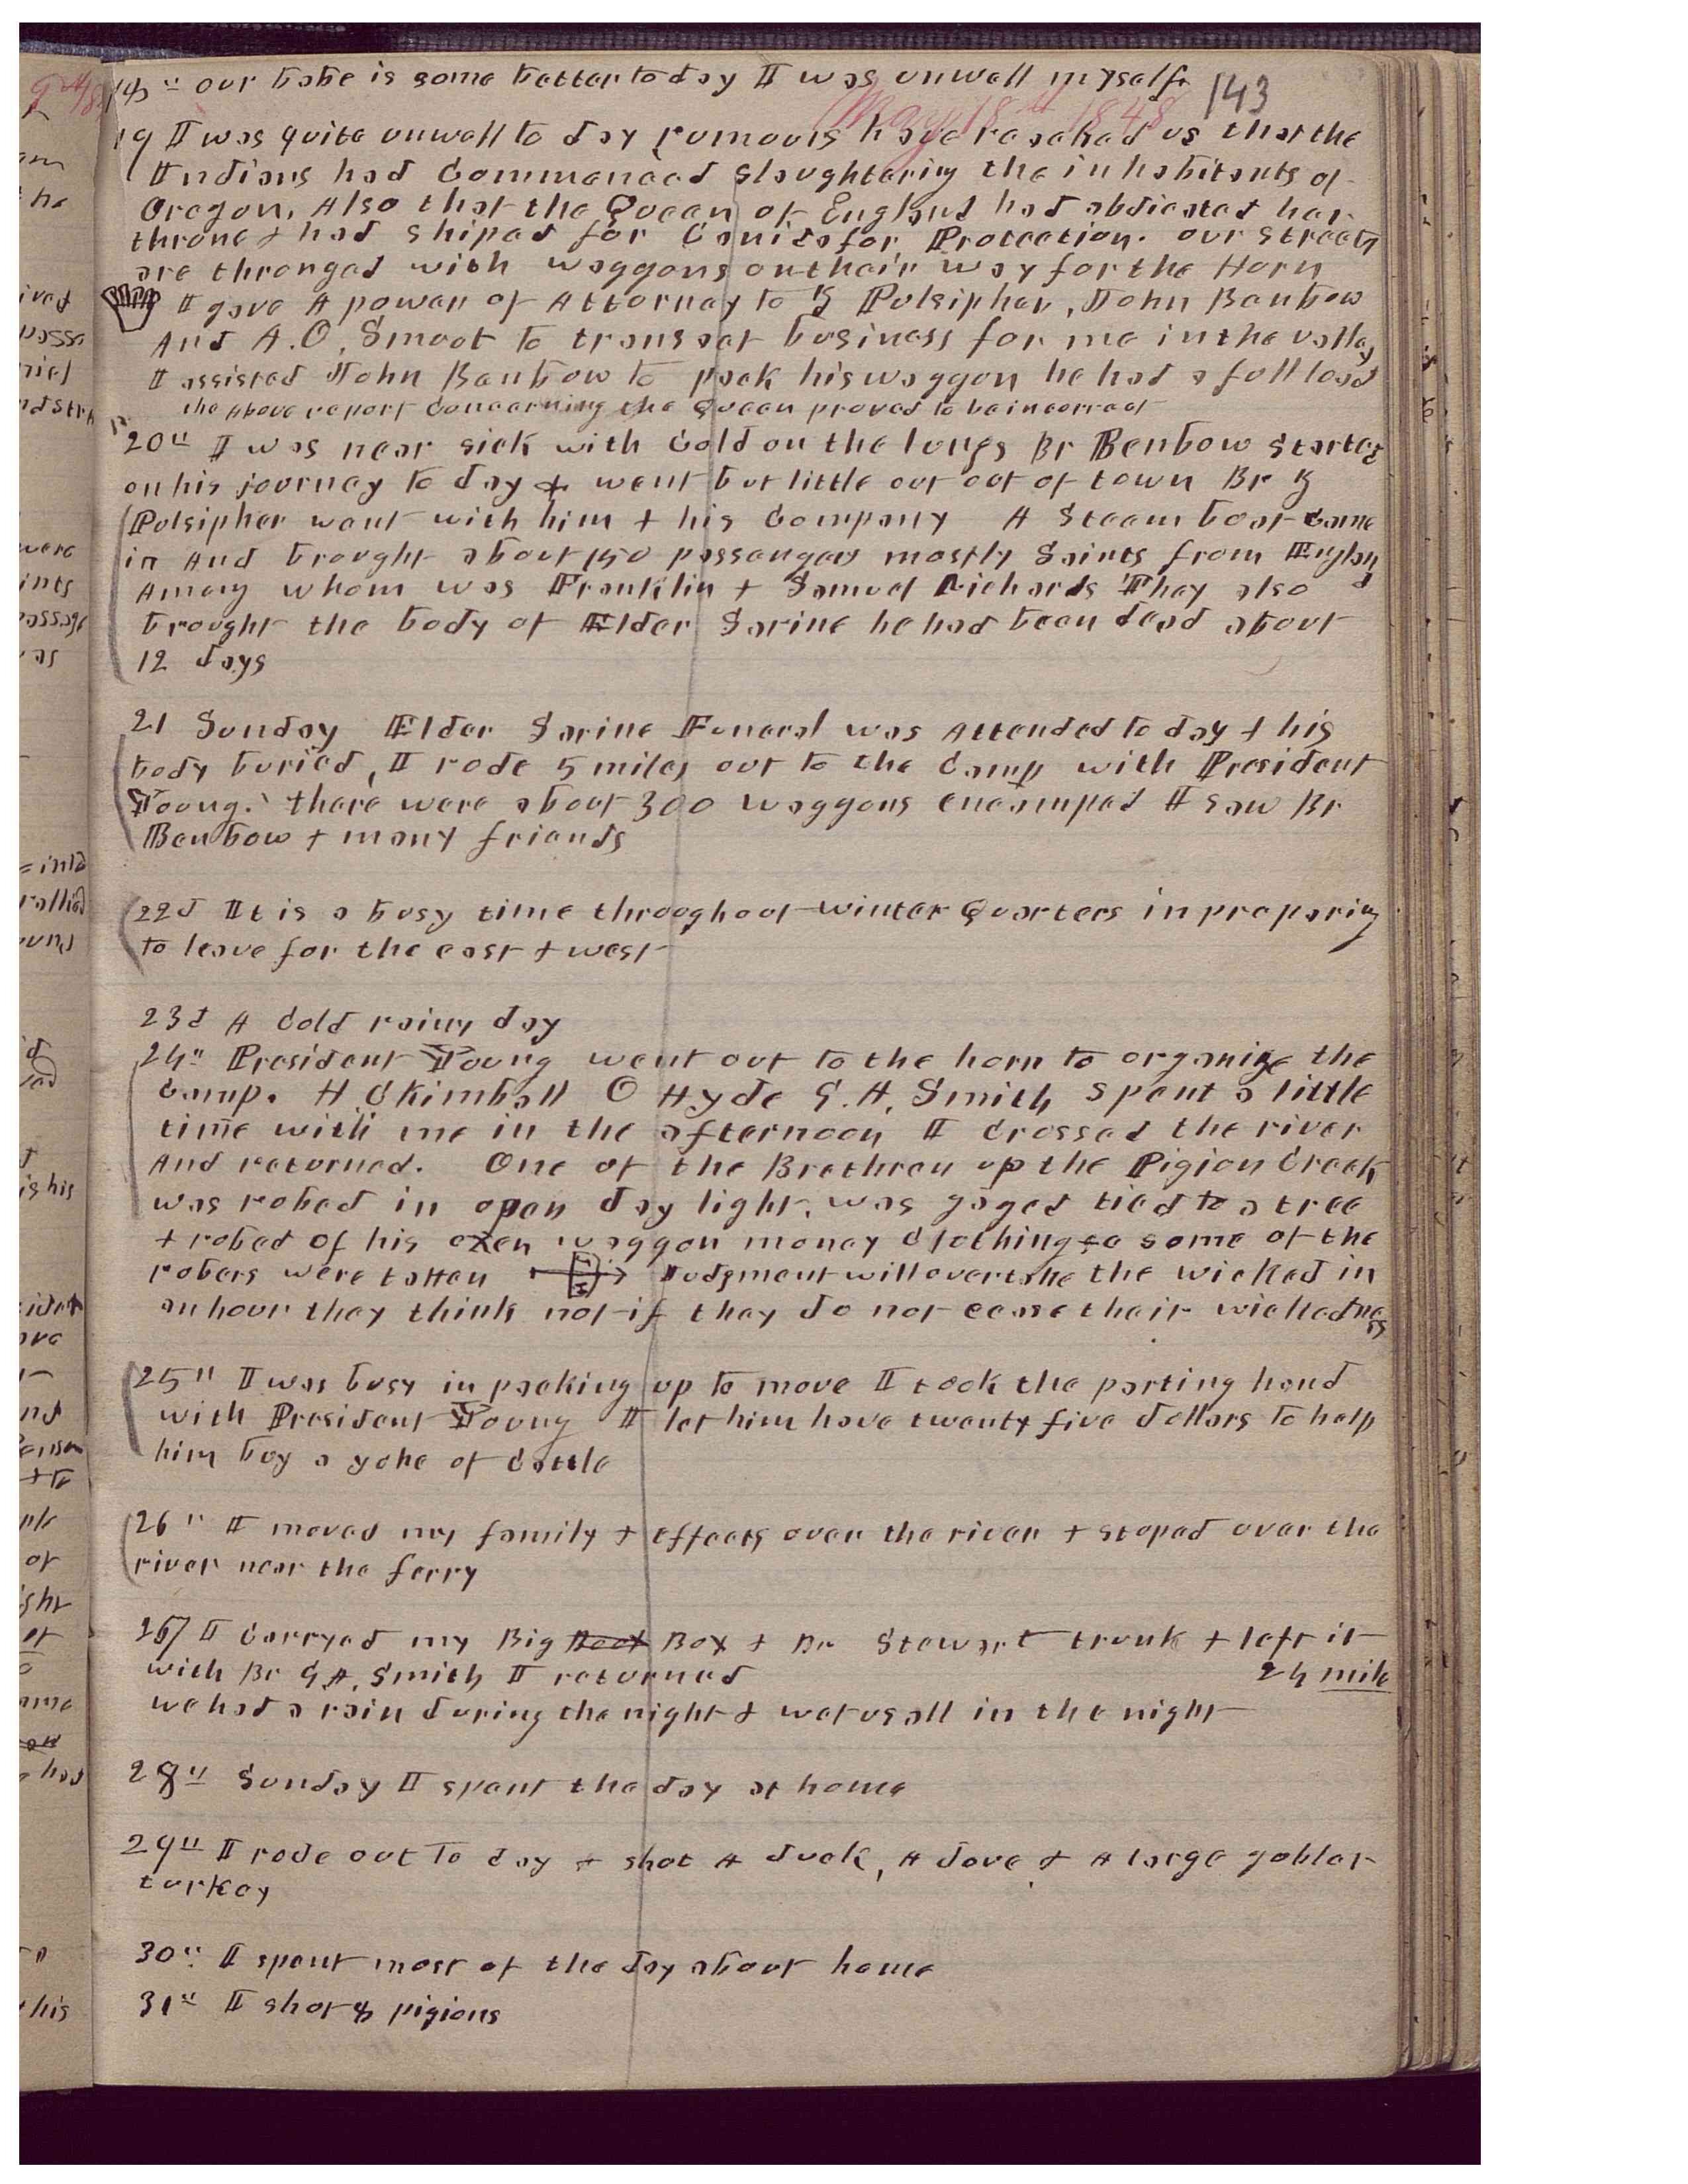 143
18th our babe is some better to day I was unwell myself
May 18th 1848
19 I was quite unwell to day rumours have reached us that the
Indians had Commenced Slaughtering the inhabitants of
Oregon, Also that the Queen of England had abdicated her
throne & had Shiped for Canida for Protection. our streets
are thronged with waggons on their way for the Horn
I gave A power of Attorney to Z Pulsipher, John Benbow
And A.O. Smoot to transact business for me in the valley
I assisted John Benbow to pack his waggon he had a full load
the Above report Concerning the Queen proved to be incorrect
20th I was near sick with Cold on the lungs Br Benbow Started
on his journey to day & went but little out out of town Br Z
Pulsipher went with him & his Company A Steem boat Came
in And brought about 150 passengers mostly Saints from England
Among whom was Franklin & Samuel Richards They also
brought the body of Elder Sarine he had been dead about
12 days
21 Sunday Elder Sarine Funeral was Attended to day & his
body buried, I rode 5 miles out to the Camp with President
Young. there were about 300 waggons encamped I saw Br
Benbow & many friends
22d It is a busy time throughout winter Quarters in preparing
to leave for the east & west
23d A Cold rainy day
24th President Young went out to the horn to organize the
Camp. H C Kimball O Hyde G.A. Smith Spent a little
time with me in the afternoon I Crossed the river
And returned. One of the Brethren up the Pigion Creek
was robed in open day light, was gaged tied to a tree
& robed of his oxen waggon money Clothing &c some of the
robers were taken Judgment will overtake the wicked in
an hour they think not if they do not cease their wickedness
25th I was busy in packing up to move I took the parting hand
with President Young I let him have twenty five dollars to help
him buy a yoke of Cattle
26th I moved my family & effects over the river & stoped over the
river near the ferry
27 I Carryed my Big Box & Br Stewart trunk & left it
with Br G A. Smith I returned 24 mile
we had a rain during the night & wet us all in the night
28th Sunday I spent the day at home
29th I rode out to day & shot A duck, A dove & A large gobler
turkey
30th I spent most of the day about home
31st I shot 8 pigions